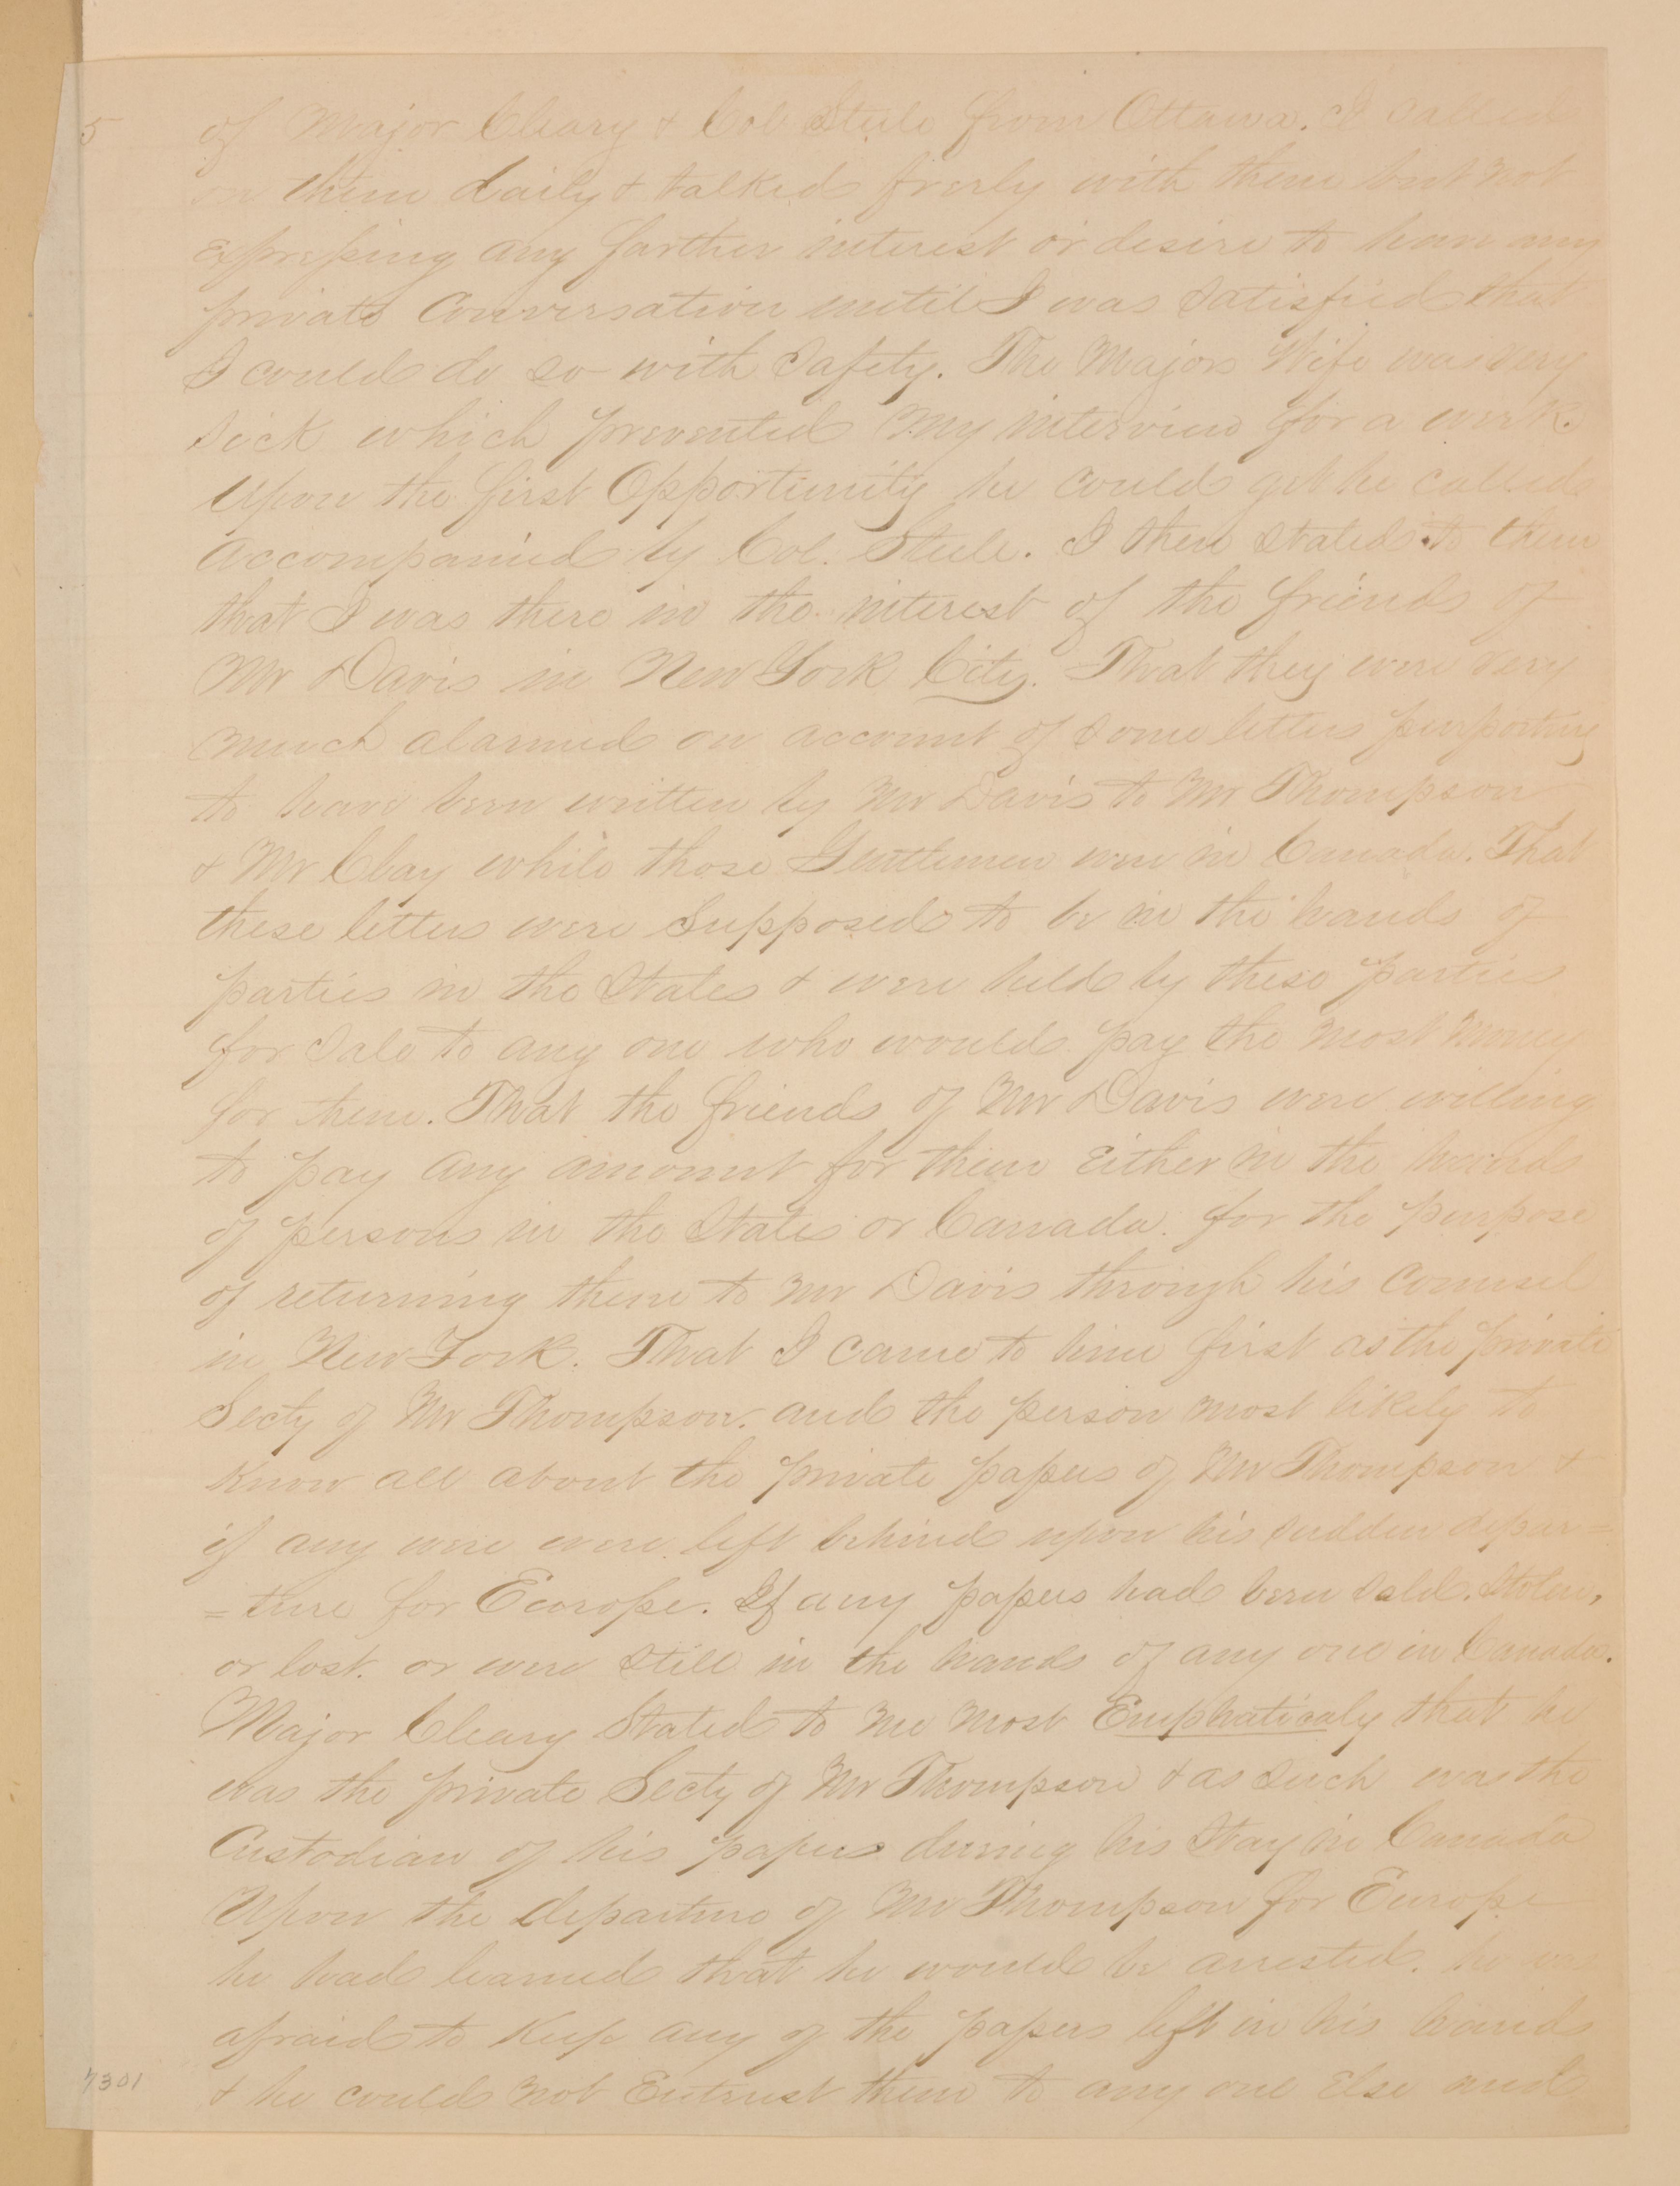 5
of Major Cleary & Col Steele from Ottawa. I called
on them daily & talked freely with them but not
Expressing any farther interest or desire to have any
private Conversation until I was Satisfied that
I could do so with Safety. The Majors Wife was very
Sick which prevented my interview for a week.
Upon the first Opportunity he could get he called
accompanied by Col. Steele. I then stated to them
that I was there in the interest of the friends of
Mr Davis in New York City. That they were very
much alarmed on account of some letters purporting
to have been written by Mr Davis to Mr Thompson
& Mr Clay while those Gentlemen were in Canada. That
these letters were Supposed to be in the hands of
parties in the States & were held by these parties
for Sale to any one who would pay the most money
for them. That the friends of Mr Davis were willing
to pay any amount for them Either in the hands
of persons in the States or Canada. for the purpose
of returning them to Mr Davis through his Counsel
in New York. That I came to him first as the private
Secty of Mr Thompson. and the person most likely to
Know all about the private papers of Mr Thompson &
if any were were left behind upon his sudden depar=
=ture for Europe. If any papers had been Sold. Stolen,
or lost. or were Still in the hands of any one in Canada.
Major Cleary Stated to me most Emphaticaly that he
was the private Secty of Mr Thompson & as Such was the
Custodian of his papers during his Stay in Canada
Upon the departure of Mr Thompson for Europe
he had learned that he would be arrested. he was
afraid to Keep any of the papers left in his hands
& he could not Entrust them to any one Else and
7301